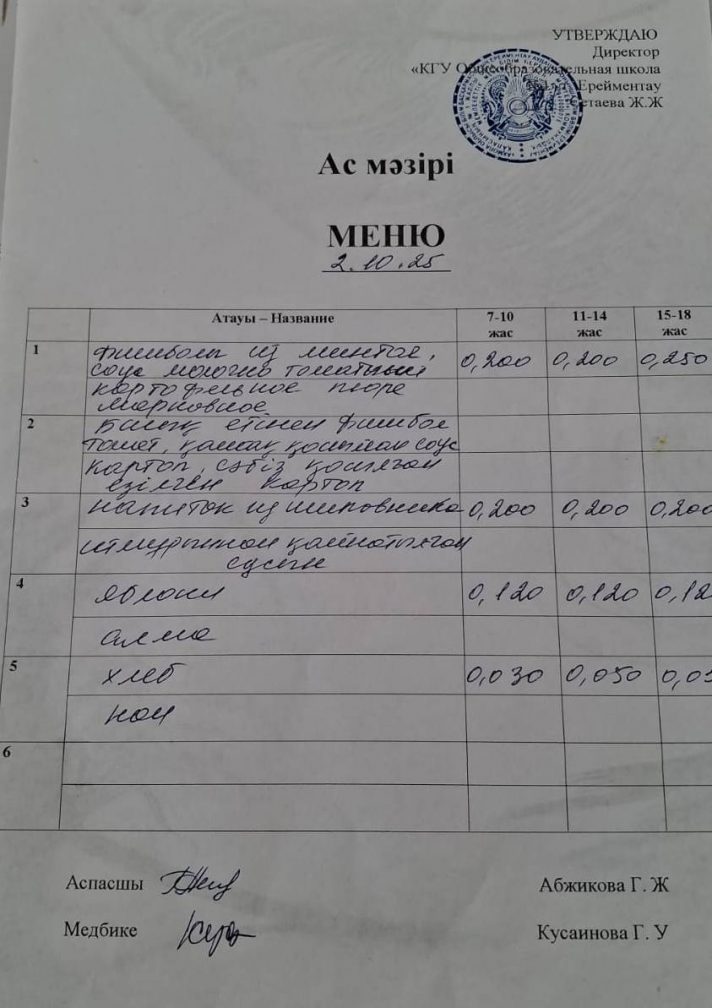 УТВЕРЖДАЮ
Директор
«КГУ Общеобразовательная школа
Ерейментау
Сетаева Ж.Ж
Ас мәзірі
МЕНЮ
2.10.25
Атауы – Название 7-10 жас 11-14 жас 15-18 жас
1 фишболы из минтая, 0,200 0,200 0,250
соус молочно томатный
картофельное пюре
морковное
2 Балық етінен фишбол
томат, қаймақ қосылған соус
картоп, сәбіз қосылған
езілген картоп
3 напиток из шиповника 0,200 0,200 0,200
итмұрыннан қайнатылған
сусын
4 яблоки 0,120 0,120 0,12
алма
5 хлеб 0,030 0,050 0,05
нан
6
Аспасшы Абжикова Г. Ж
Медбике Кусаинова Г. У